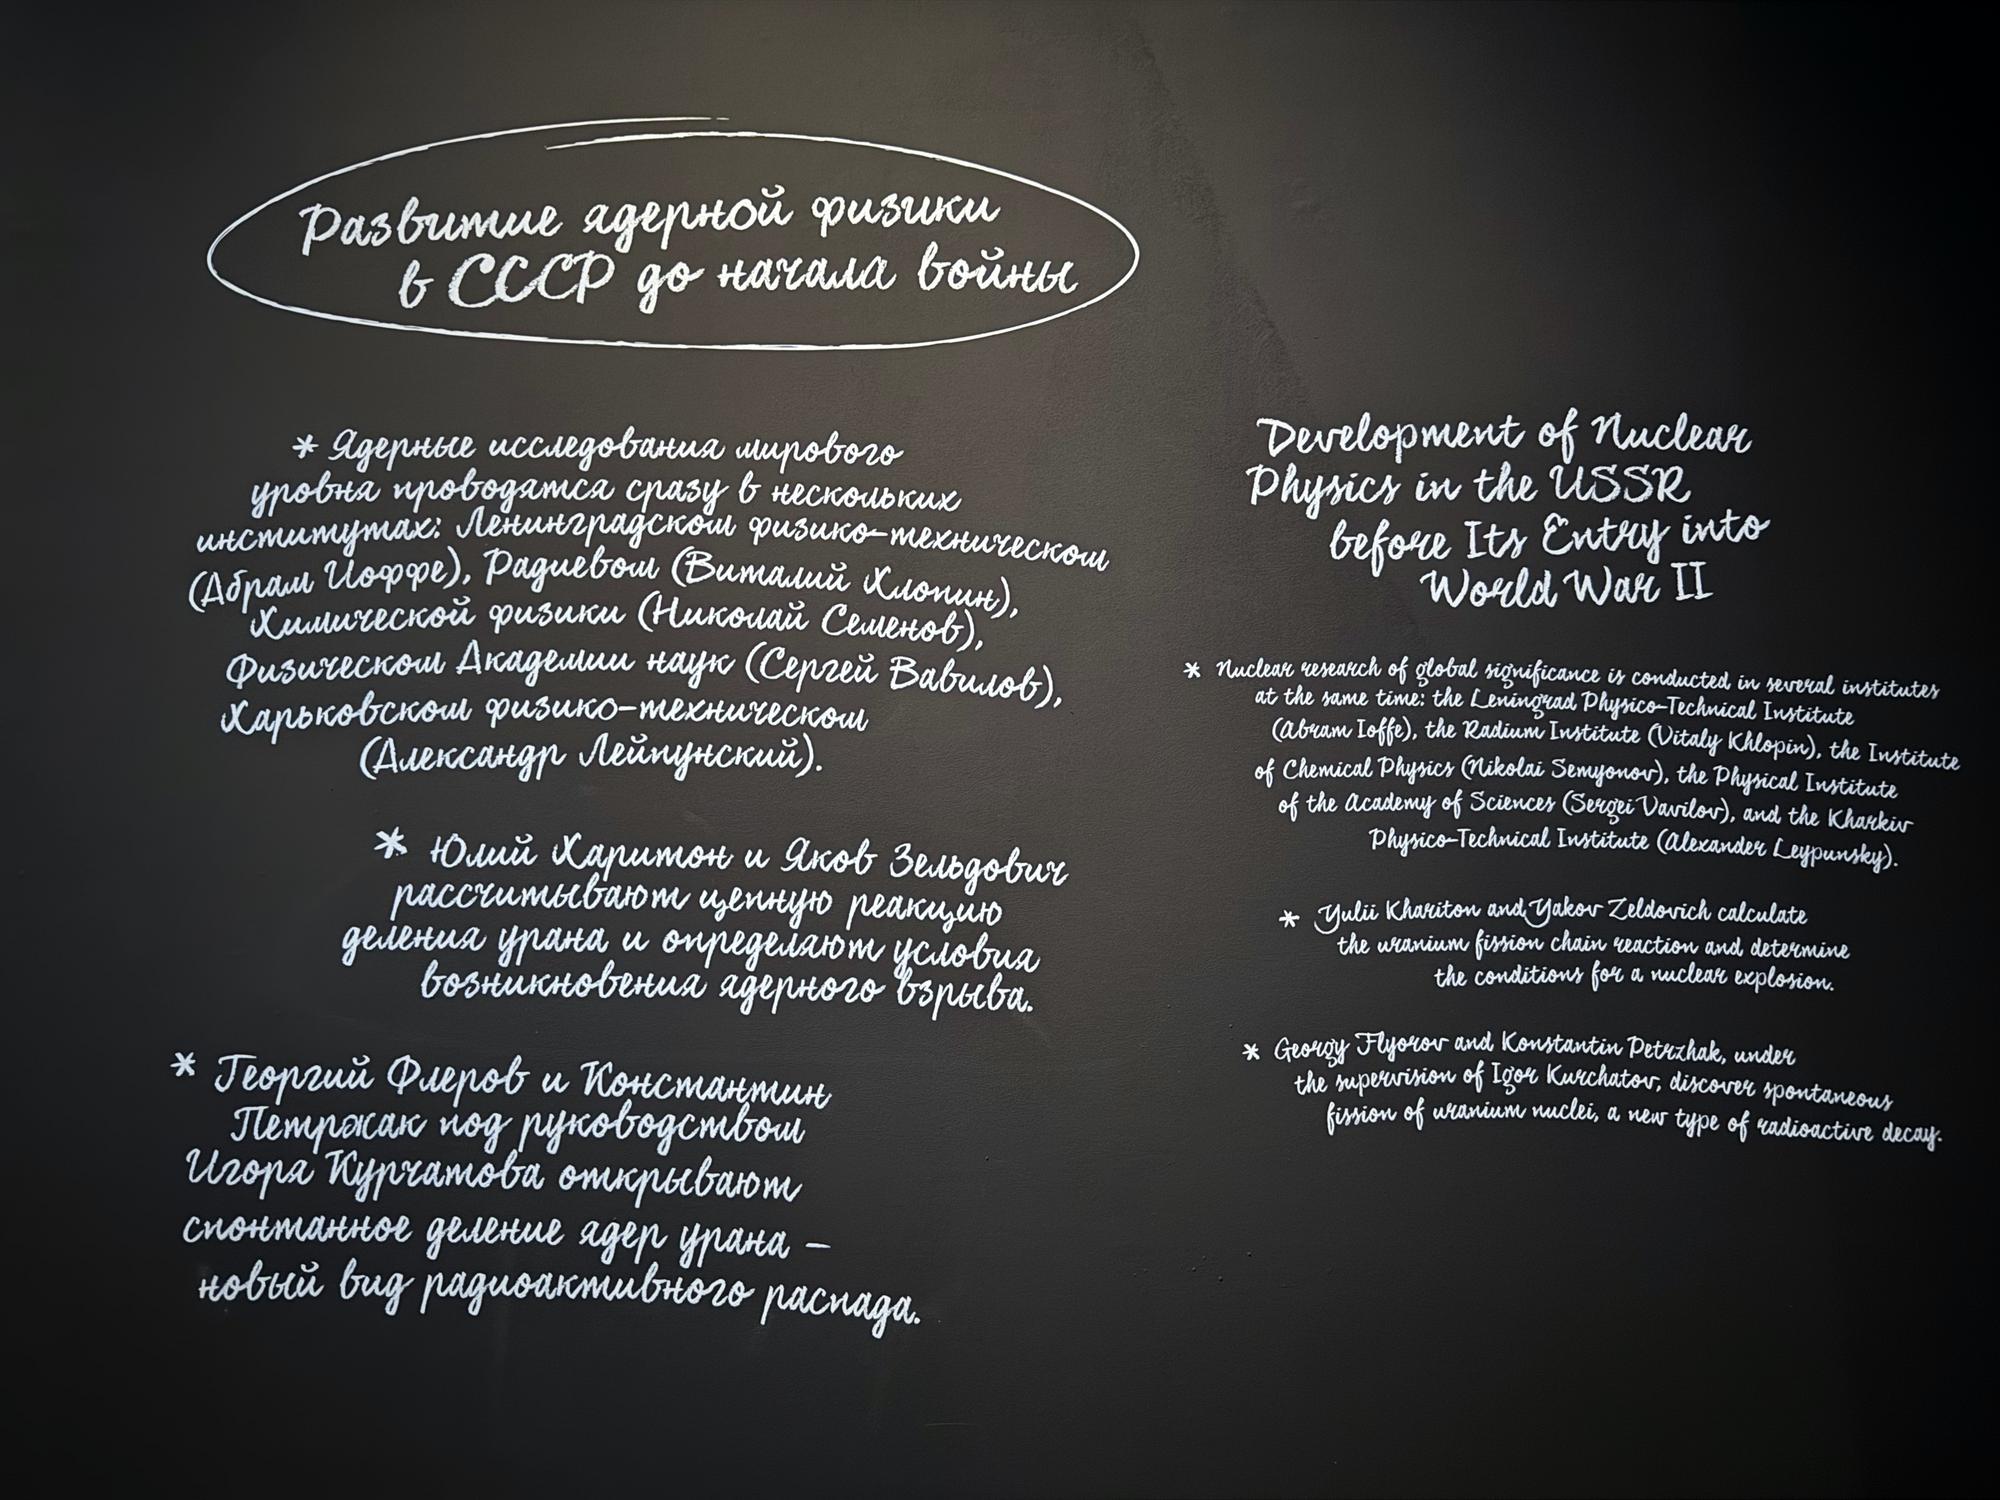 Развитие ядерной физики
в СССР до начала войны
* Ядерные исследования мирового
уровня проводятся сразу в нескольких
институтах: Ленинградском физико-техническом
(Абрам Иоффе), Радиевом (Виталий Хлопин),
Химической физики (Николай Семенов),
Физическом Академии наук (Сергей Вавилов),
Харьковском физико-техническом
(Александр Лейпунский).
* Юлий Харитон и Яков Зельдович
рассчитывают цепную реакцию
деления урана и определяют условия
возникновения ядерного взрыва.
* Георгий Флеров и Константин
Петржак под руководством
Игоря Курчатова открывают
спонтанное деление ядер урана –
новый вид радиоактивного распада.
Development of Nuclear
Physics in the USSR
before Its Entry into
World War II
* Nuclear research of global significance is conducted in several institutes
at the same time: the Leningrad Physico-Technical Institute
(Abram Ioffe), the Radium Institute (Vitaly Khlopin), the Institute
of Chemical Physics (Nikolai Semyonov), the Physical Institute
of the Academy of Sciences (Sergei Vavilov), and the Kharkiv
Physico-Technical Institute (Alexander Leypunsky).
* Yulii Khariton and Yakov Zeldovich calculate
the uranium fission chain reaction and determine
the conditions for a nuclear explosion.
* Georgy Flyorov and Konstantin Petrzhak, under
the supervision of Igor Kurchatov, discover spontaneous
fission of uranium nuclei, a new type of radioactive decay.